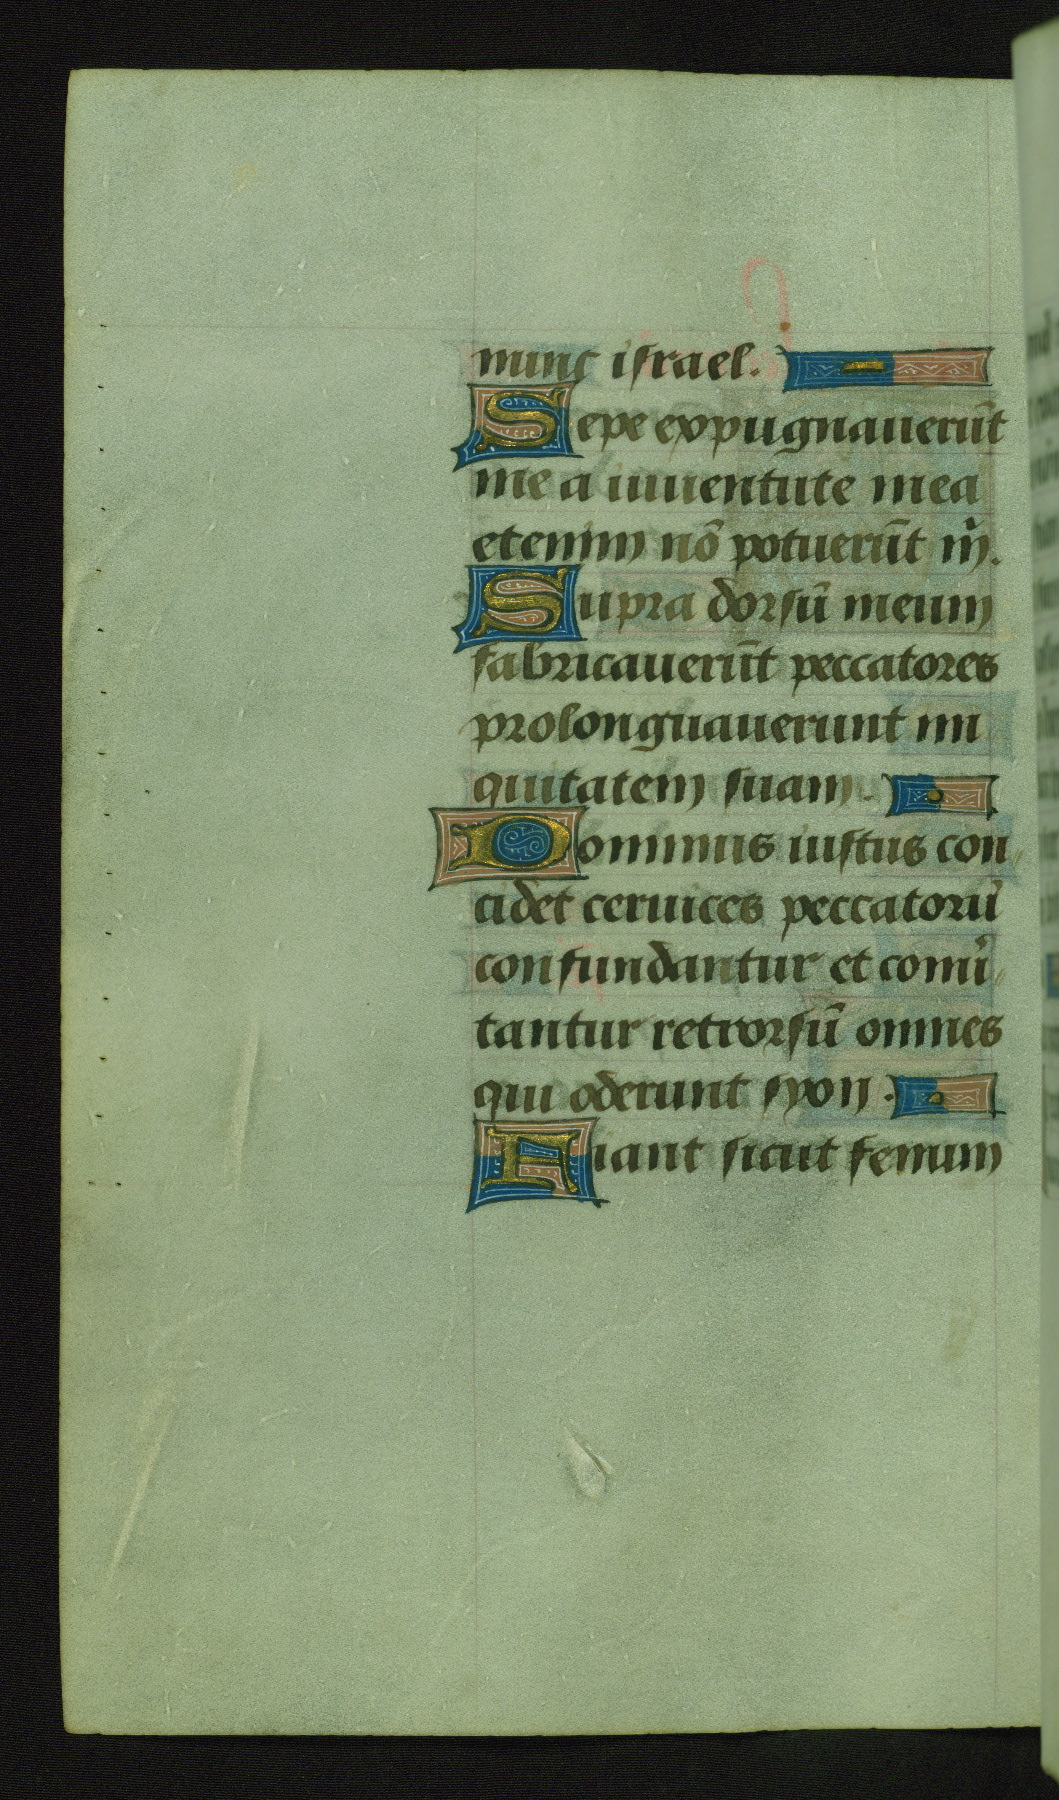 nunc israel.
Sepe expugnauerūt
me a iuuentute mea
etenim nō potuerūt m̄.
Supra dorsū meum
fabricauerūt peccatores
prolongnauerunt ini
quitatem suam.
Dominus iustus con
cidet ceruices peccatorū
confundantur et comū
tantur retrorsū omnes
qui oderunt syon.
Fiant sicut fenum